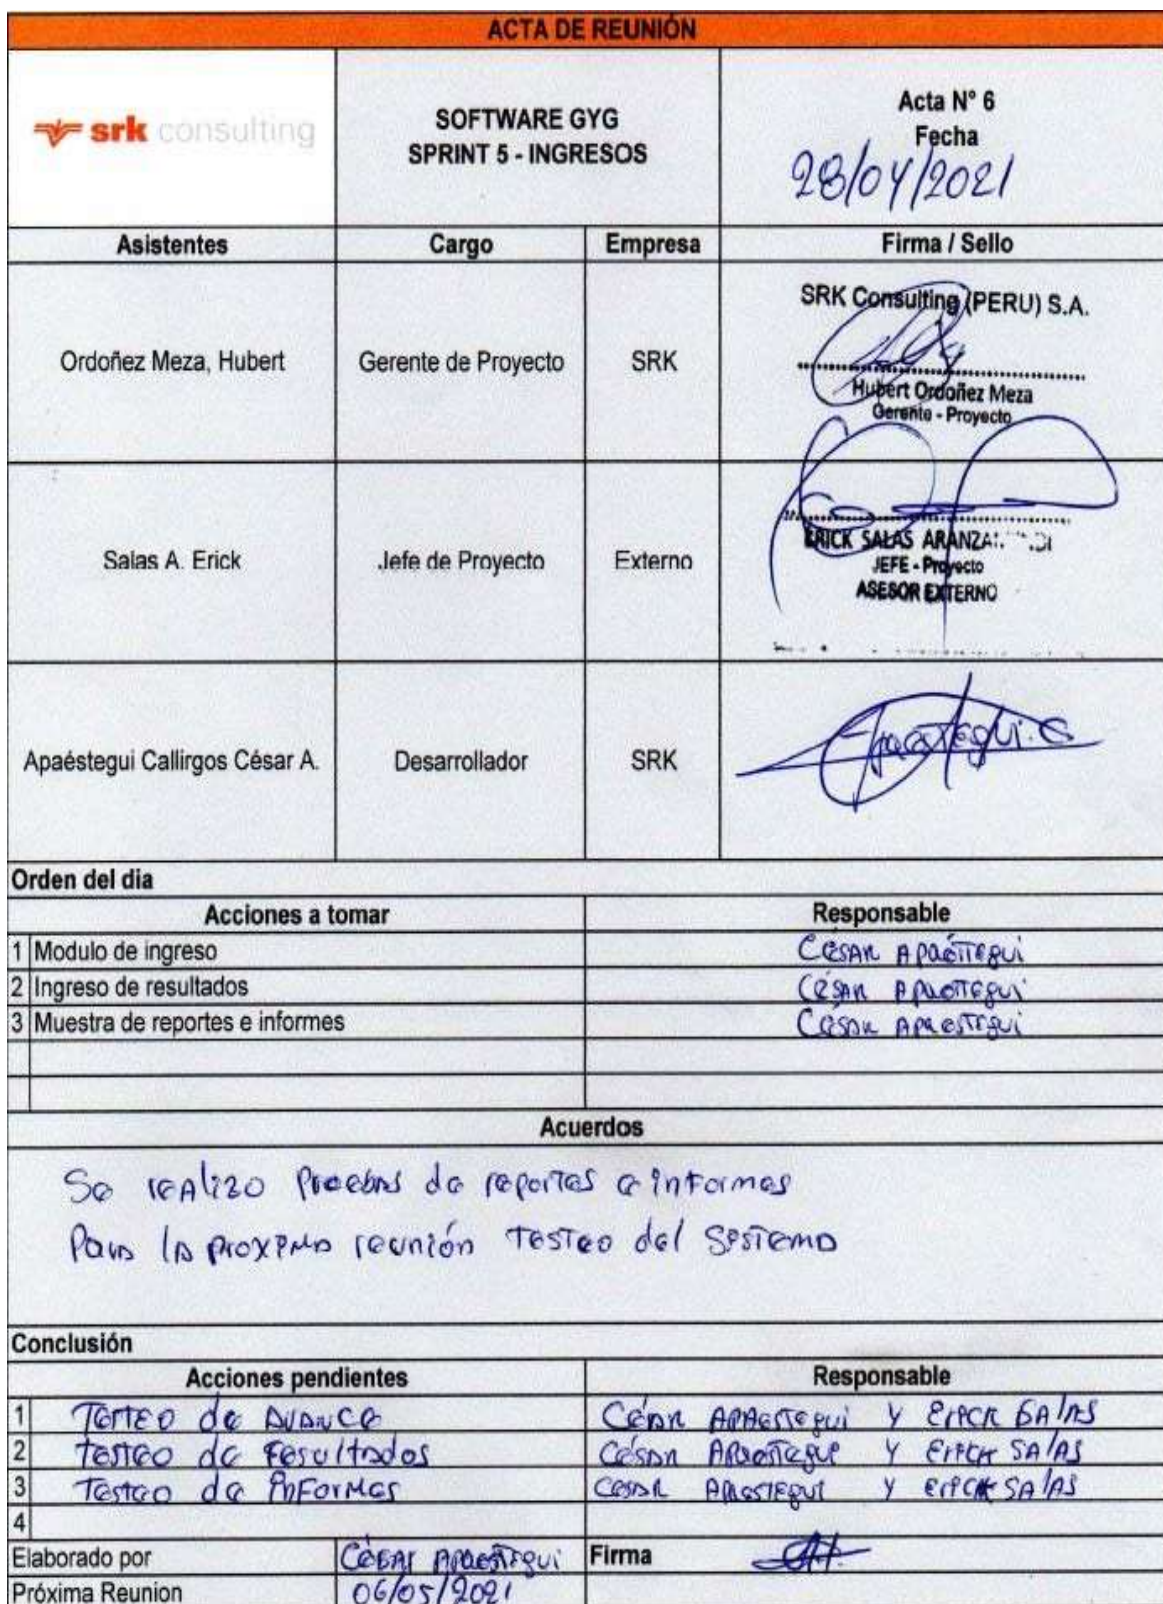 ACTA DE REUNIÓN
srk consulting
SOFTWARE GYG
SPRINT 5 - INGRESOS
Acta N° 6
Fecha
28/04/2021
Asistentes Cargo Empresa Firma / Sello
Ordoñez Meza, Hubert Gerente de Proyecto SRK
SRK Consulting (PERU) S.A.
Hubert Ordoñez Meza
Gerente - Proyecto
Salas A. Erick Jefe de Proyecto Externo
ERICK SALAS
JEFE - Proyecto
ASESOR EXTERNO
Apaéstegui Callirgos César A. Desarrollador SRK
Apaestegui.C
Orden del dia
Acciones a tomar Responsable
1 Modulo de ingreso César Apaéstegui
2 Ingreso de resultados César Apaestegui
3 Muestra de reportes e informes César Apaestegui
Acuerdos
Se realizo Pruebas de reportes e informes
Para la proxima reunión testeo del sistema
Conclusión
Acciones pendientes Responsable
1 Testeo de avance César Apaestegui y Erick Salas
2 Testeo de resultados César Apaestegui y Erick Salas
3 Testeo de informes Cesar Apaestegui y Erick Salas
4
Elaborado por César Apaestegui Firma
Próxima Reunion 06/05/2021